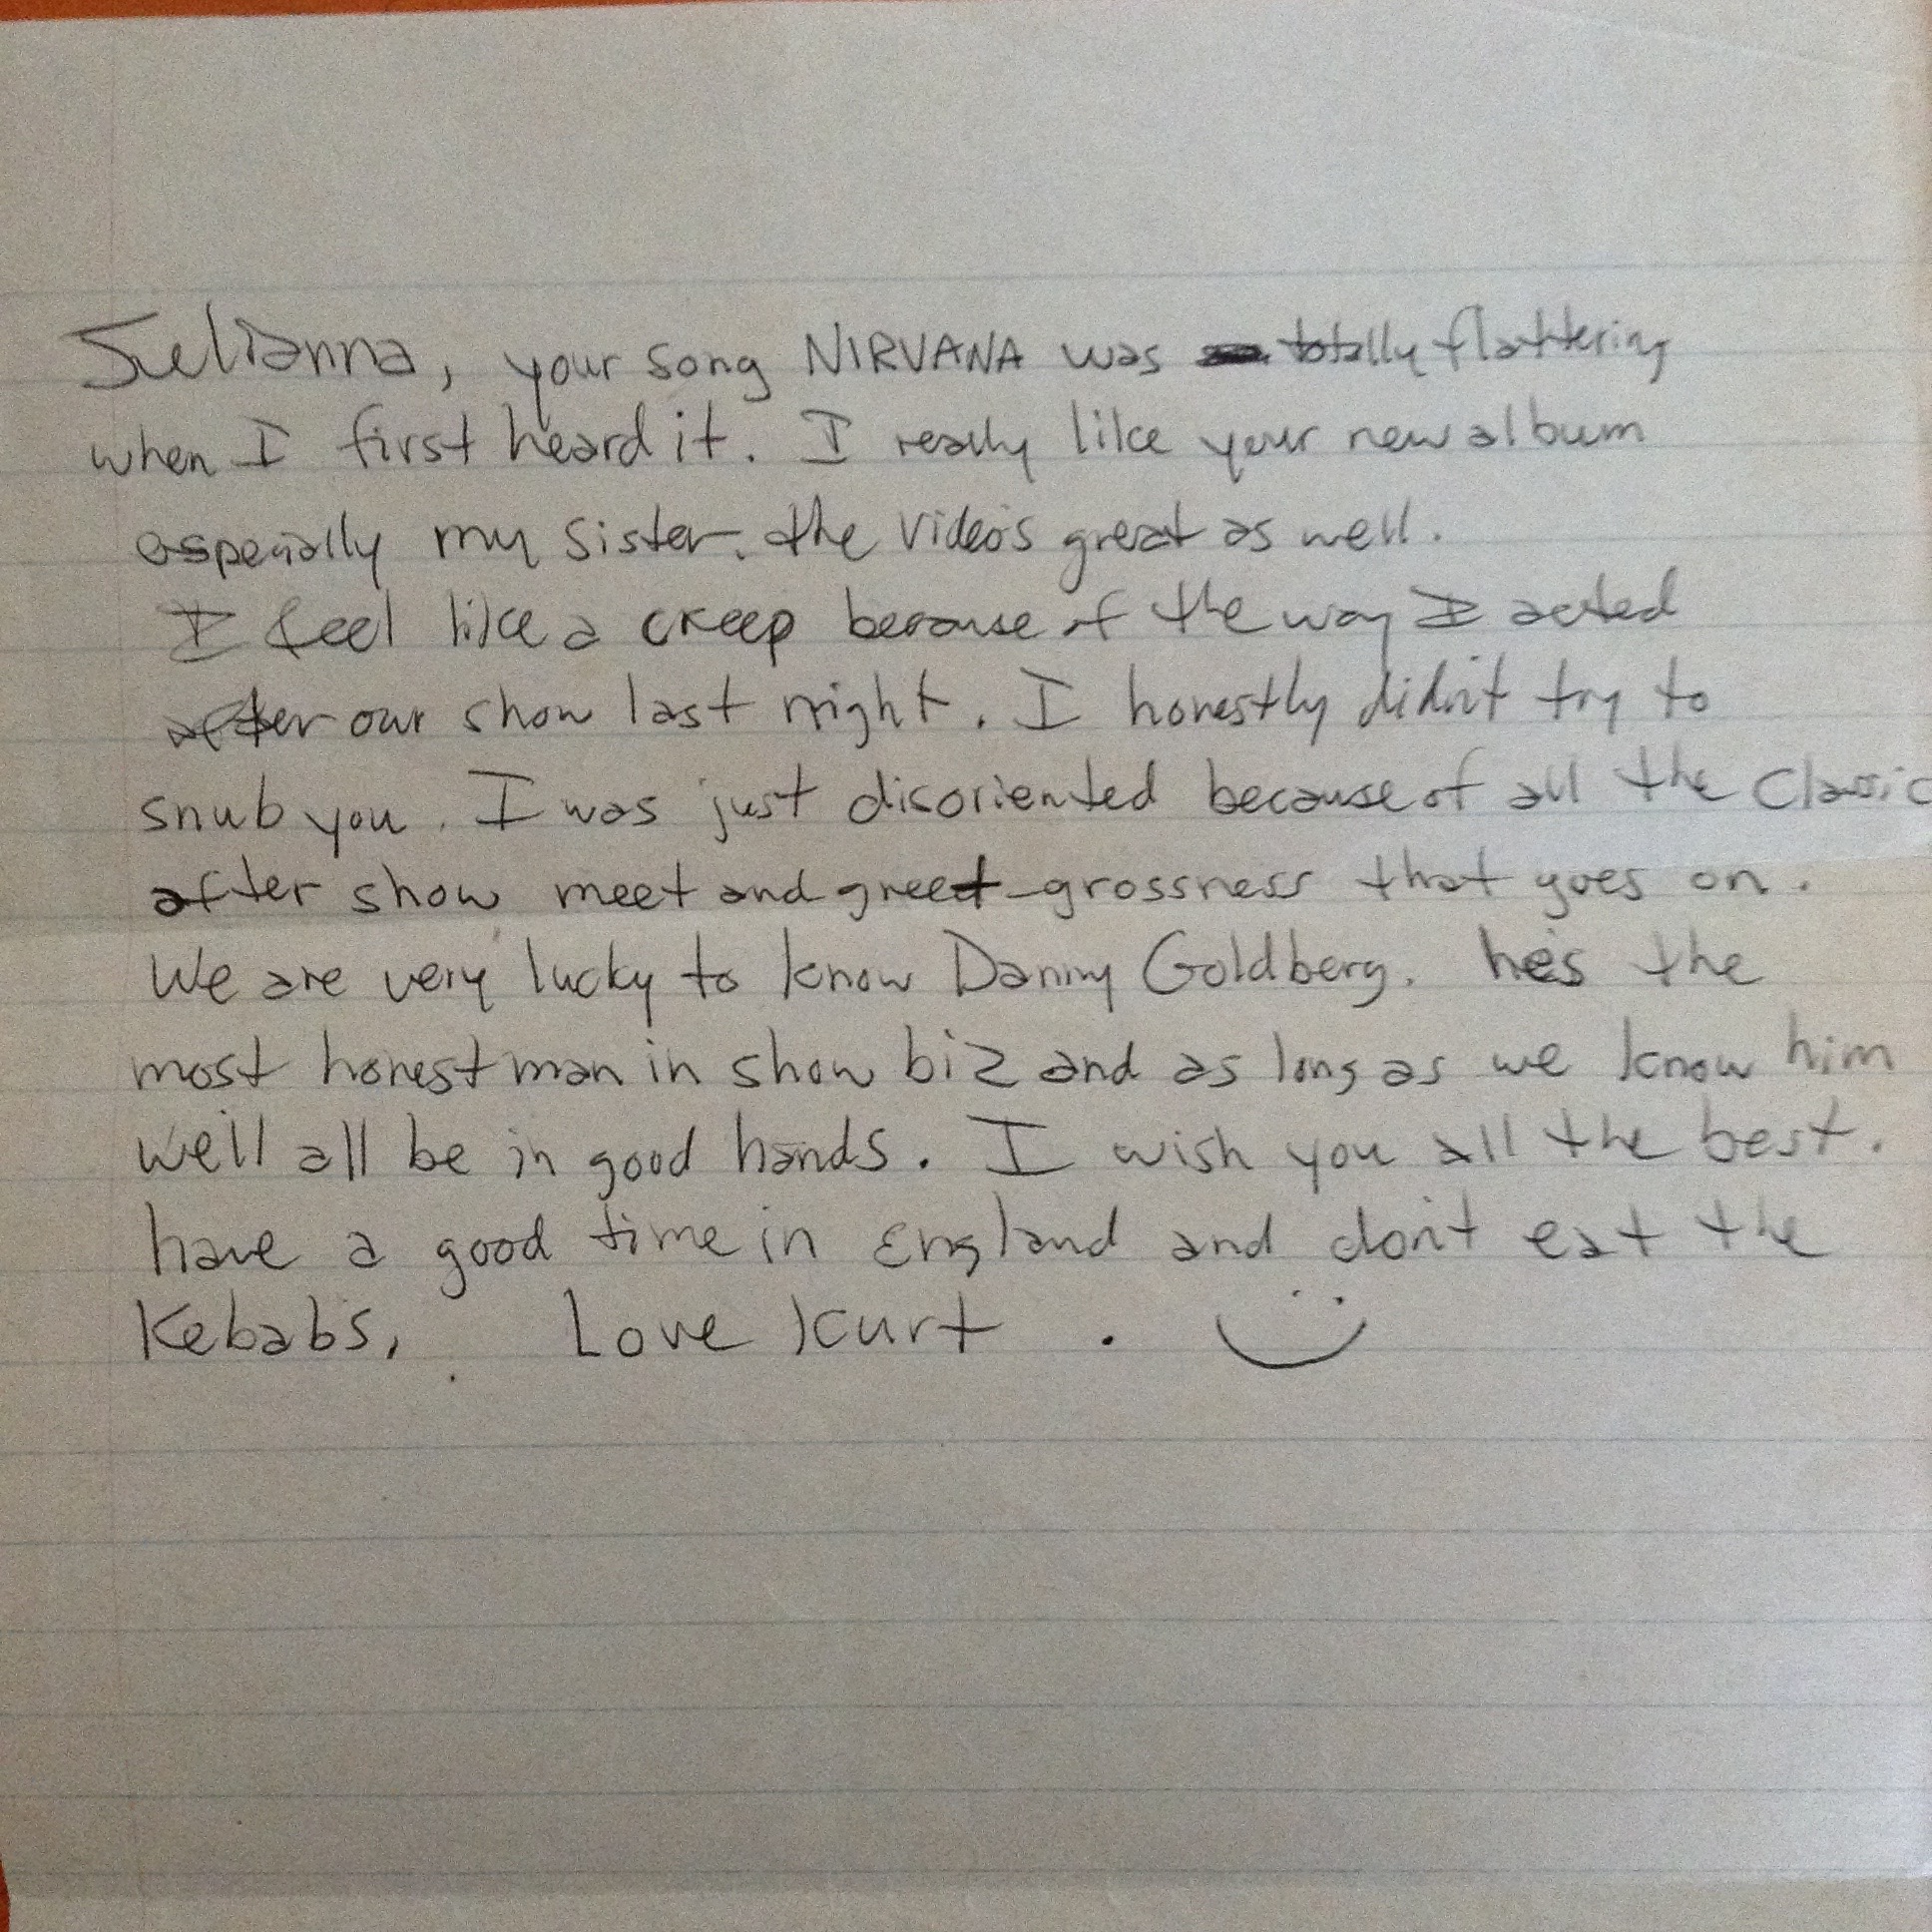 Julianna, your song NIRVANA was totally flattering
when I first heard it. I really like your new album
especially my sister. the video's great as well.
I feel like a creep because of the way I acted
after our show last night. I honestly didn't try to
snub you. I was just disoriented because of all the Classic
after show meet and greet grossness that goes on.
We are very lucky to know Danny Goldberg. he's the
most honest man in show biz and as long as we know him
we'll all be in good hands. I wish you all the best.
have a good time in England and don't eat the
Kebabs. Love Kurt .